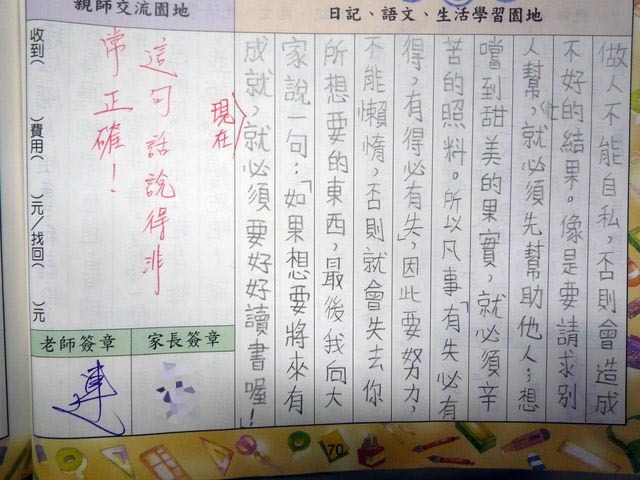 親師交流園地
日記、語文、生活學習園地
做人不能自私,否則會造成
不好的結果。像是要請求別
人幫忙,就必須先幫助他人;想
嚐到甜美的果實,就必須辛
苦的照料。所以凡事「有失必有
得,有得必有失」,因此要努力,
不能懶惰,否則就會失去你
所想要的東西,最後我向大
家說一句:「如果想要將來有
成就,現在就必須要好好讀書喔!
這句話說得非
常正確!
收到( )費用( )元/找回( )元
老師簽章
家長簽章
70